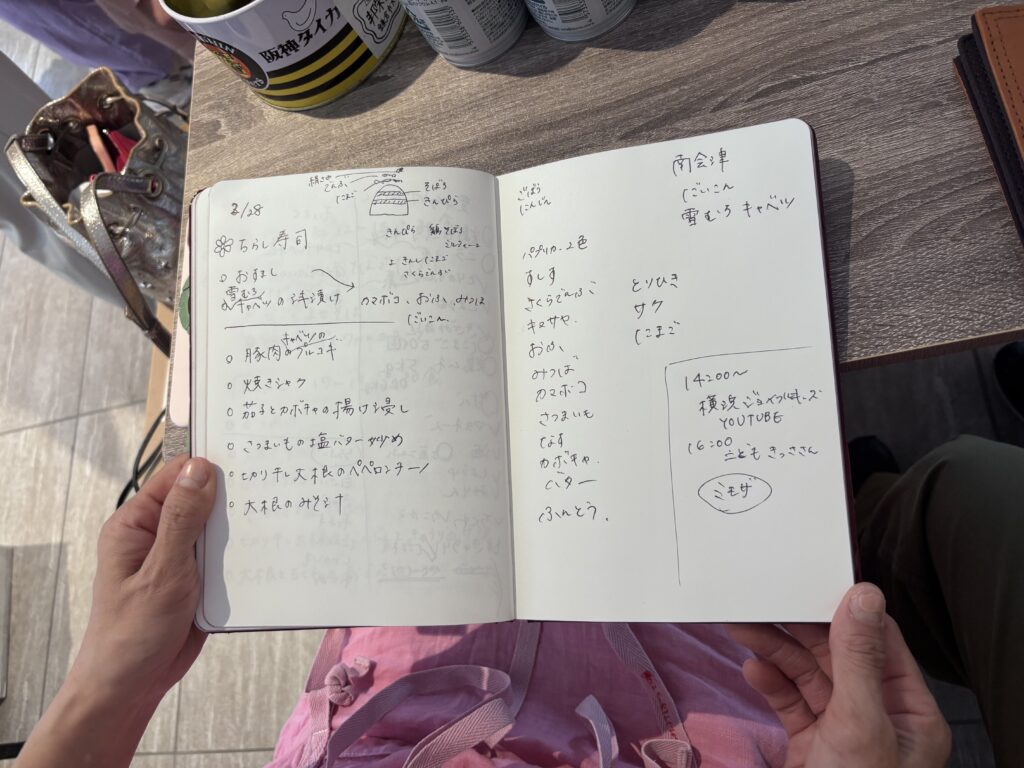 阪神タイガ
3/28
ちらし寿司
でんぶ
にまご
そぼろ
きんぴら
きんぴら 鶏そぼろ
さくらでんぶ
おすまし
雪むろ
キャベツの浅漬け
カマボコ、おふ、みつば
にいこん
キャベツの
豚肉のプルコギ
焼きジャケ
茄子とカボチャの揚げ浸し
さつまいもの塩バター炒め
切り干し大根のペペロンチーノ
大根のみそ汁
ごぼう
にんじん
パプリカ 2色
すしす
さくらでんぶ
キヌサヤ
おふ、
みつば
カマボコ
さつまいも
なす
カボチャ
バター
ふんどう、
とりひき
サケ
にまご
南会津
にいこん
雪むろ キャベツ
14:00〜
横浜ジョイフル
YOUTUBE
16:00
こども きっささん
ミモザ